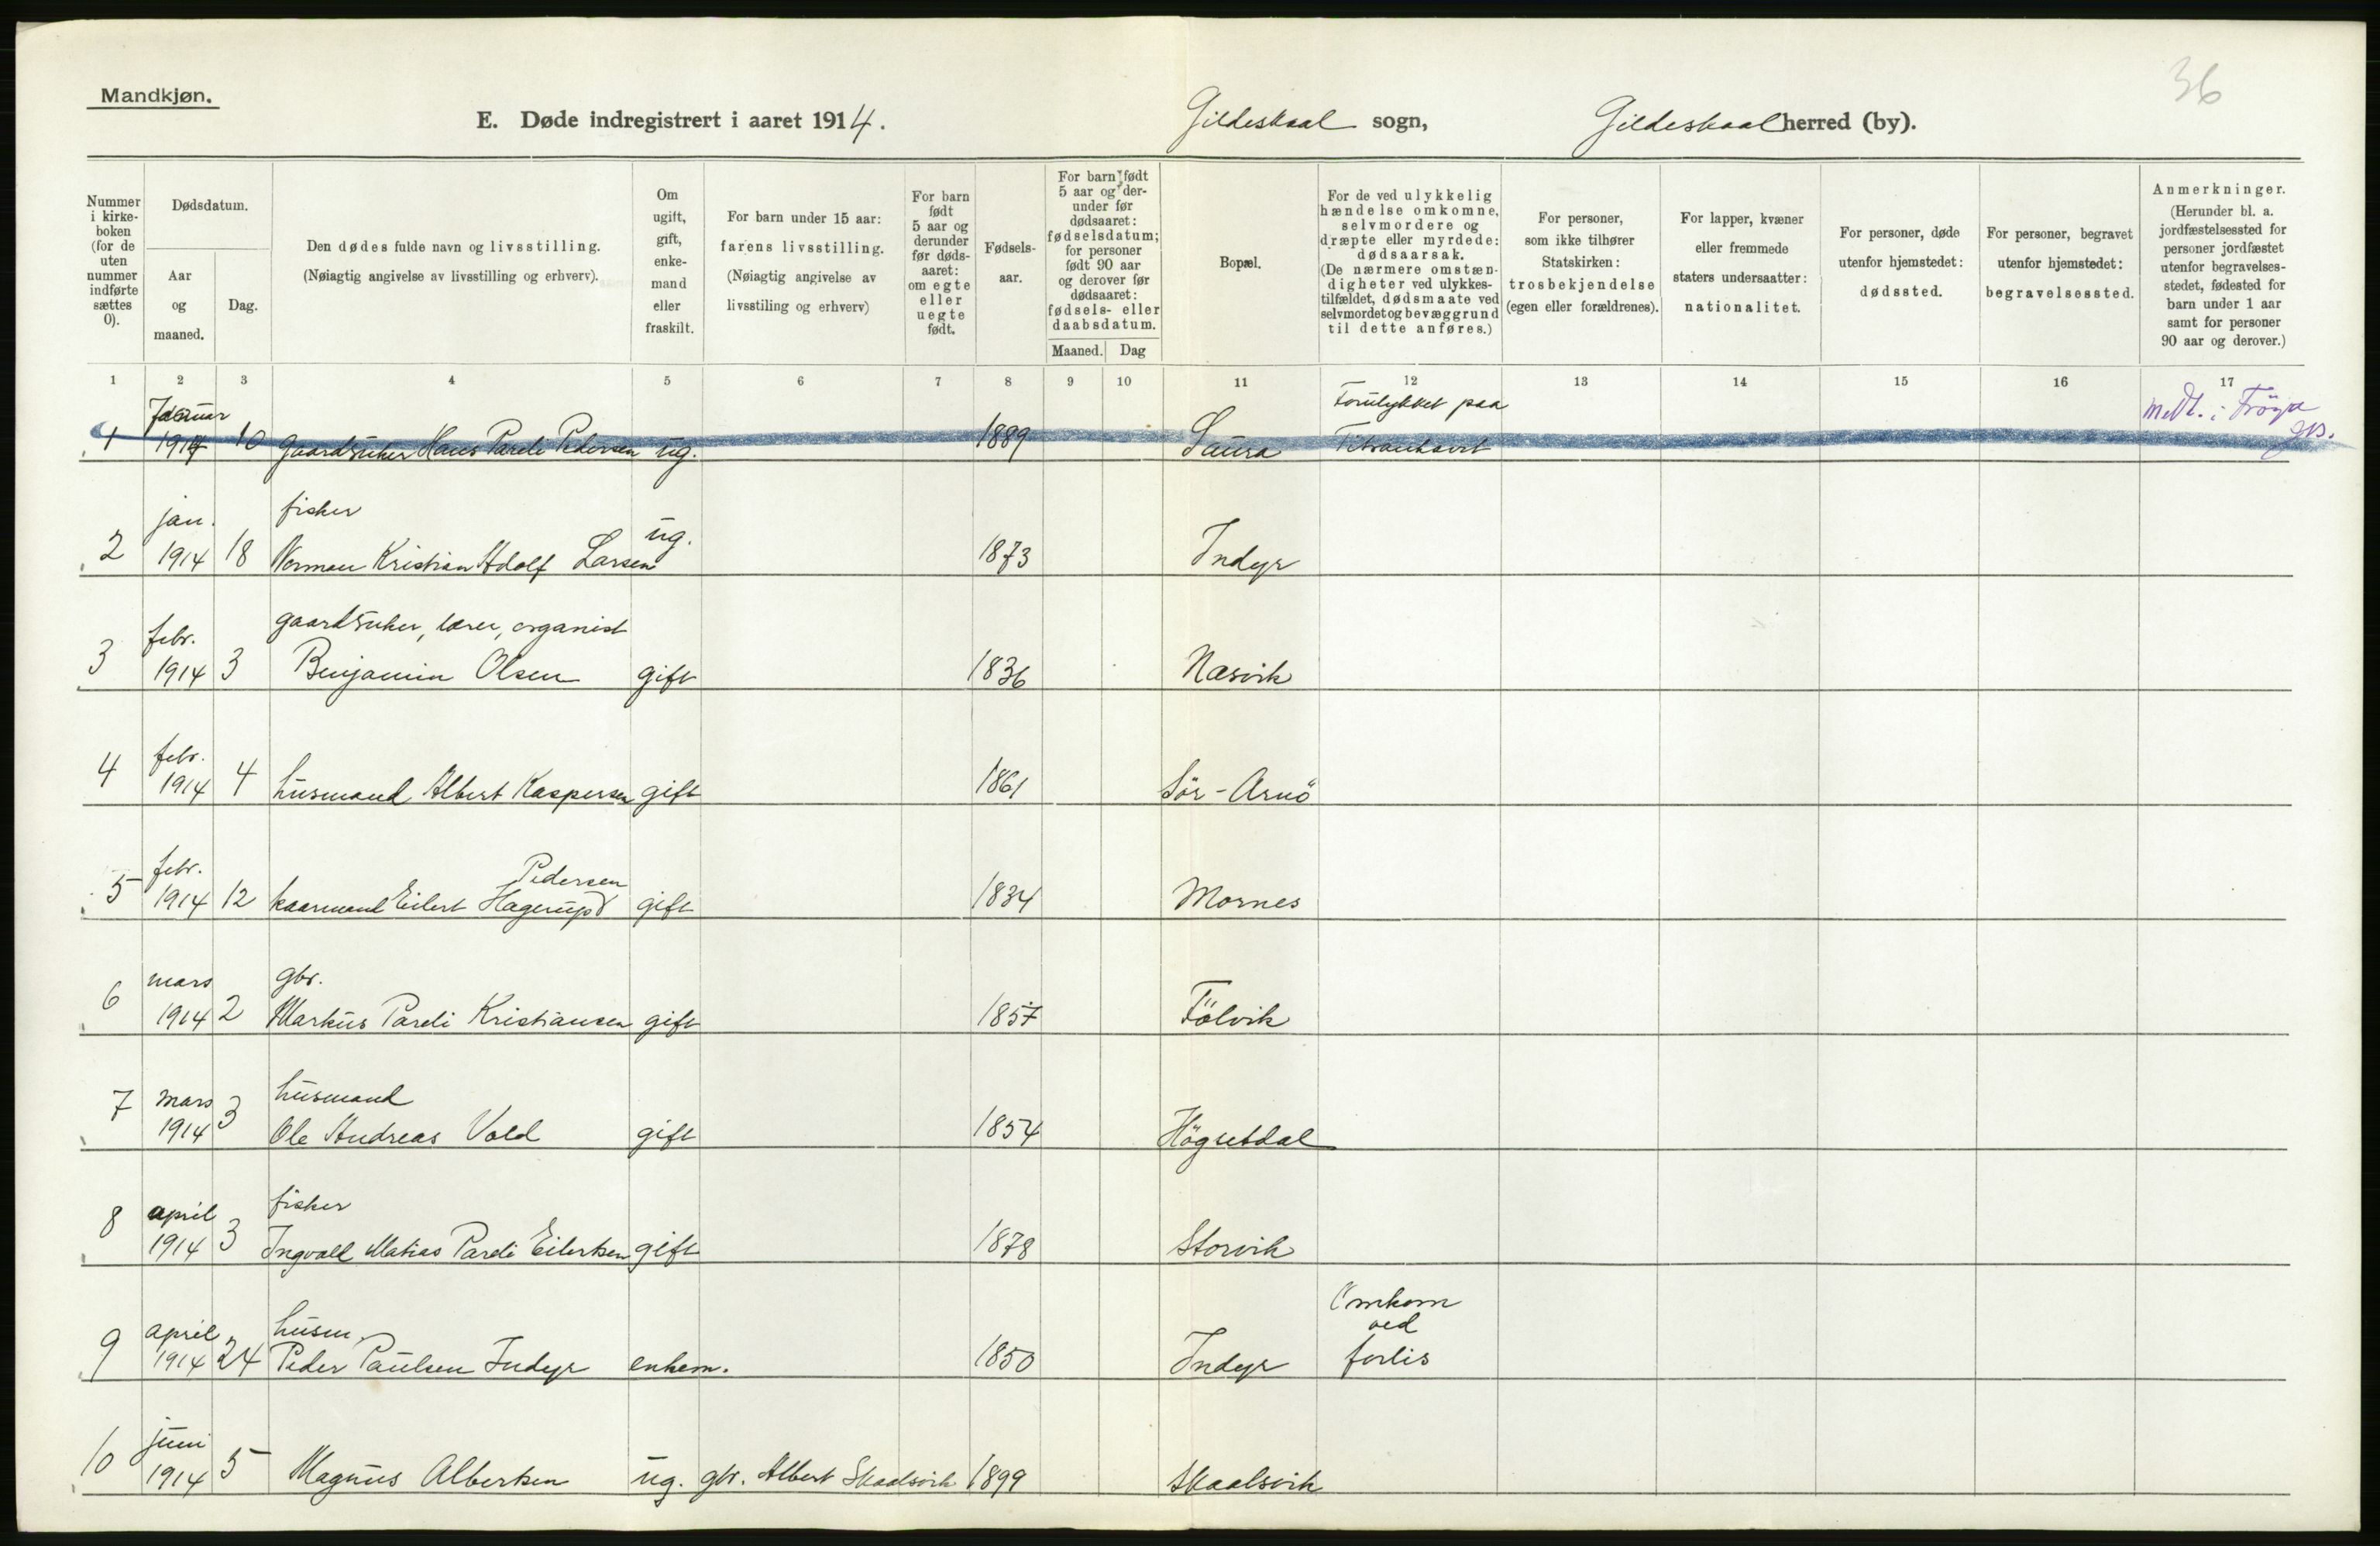 36
Mandkjøn.
E. Døde indregistrert i aaret 1914. Gildeskaal sogn, Gildeskaal herred (by).
Nummer i kirke-boken (for de uten nummer indførte sættes 0).
Dødsdatum.
Aar og maaned.
Dag.
Den dødes fulde navn og livsstilling.
(Nøiagtig angivelse av livsstilling og erhverv).
Om ugift, gift, enke-mand eller fraskilt.
For barn under 15 aar:
farens livsstilling.
(Nøiagtig angivelse av livsstiling og erhverv)
For barn født 5 aar og derunder før døds-aaret: om egte eller uegte født.
Fødsels-aar.
For barn født 5 aar og der-under før dødsaaret: fødselsdatum; for personer født 90 aar og derover før dødsaaret: fødsels- eller daabsdatum.
Maaned. Dag
Bopæl.
For de ved ulykkelig hændelse omkomne, selvmordere og dræpte eller myrdede: dødsaarsak. (De nærmere omstæn-digheter ved ulykkes-tilfældet, dødsmaate ved selvmordet og bevæggrund til dette anføres.)
For personer, som ikke tilhører Statskirken: trosbekjendelse (egen eller forældrenes).
For lapper, kvæner eller fremmede staters undersaatter: nationalitet.
For personer, døde utenfor hjemstedet: dødssted.
For personer, begravet utenfor hjemstedet: begravelsessted.
Anmerkninger.
(Herunder bl. a. jordfæstelsessted for personer jordfæstet utenfor begravelses-stedet, fødested for barn under 1 aar samt for personer 90 aar og derover.)
1 2 3 4 5 6 7 8 9 10 11 12 13 14 15 16 17
Januar Forulykket paa Medt. i Fröya
1 1914 10 gaardbruker Hans Pareli Pedersen ug. 1889 Saura Titranhavet
jan. fisker
2 1914 18 Norman Kristian Adolf Larsen ug. 1873 Indyr
febr. gaardbruker, lærer, organist
3 1914 3 Benjamin Olsen gift 1836 Næsvik
febr.
4 1914 4 husmand Albert Kaspersen gift 1861 Sör-Arnö
febr. Pedersen
5 1914 12 kaarmand Eilert Hagerup gift 1834 Mornes
mars gbr.
6 1914 2 Markus Pareli Kristiansen gift 1857 Fölvik
mars husmand
7 1914 3 Ole Andreas Vold gift 1854 Högsetdal
april fisker
8 1914 3 Ingvald Matias Pareli Eilertsen gift 1878 Storvik
april husm. Omkom ved
9 1914 24 Peder Paulsen Indyr enkem. 1850 Indyr forlis
juni
10 1914 5 Magnus Albertsen ug. gbr. Albert Skaalsvik 1899 Skaalsvik